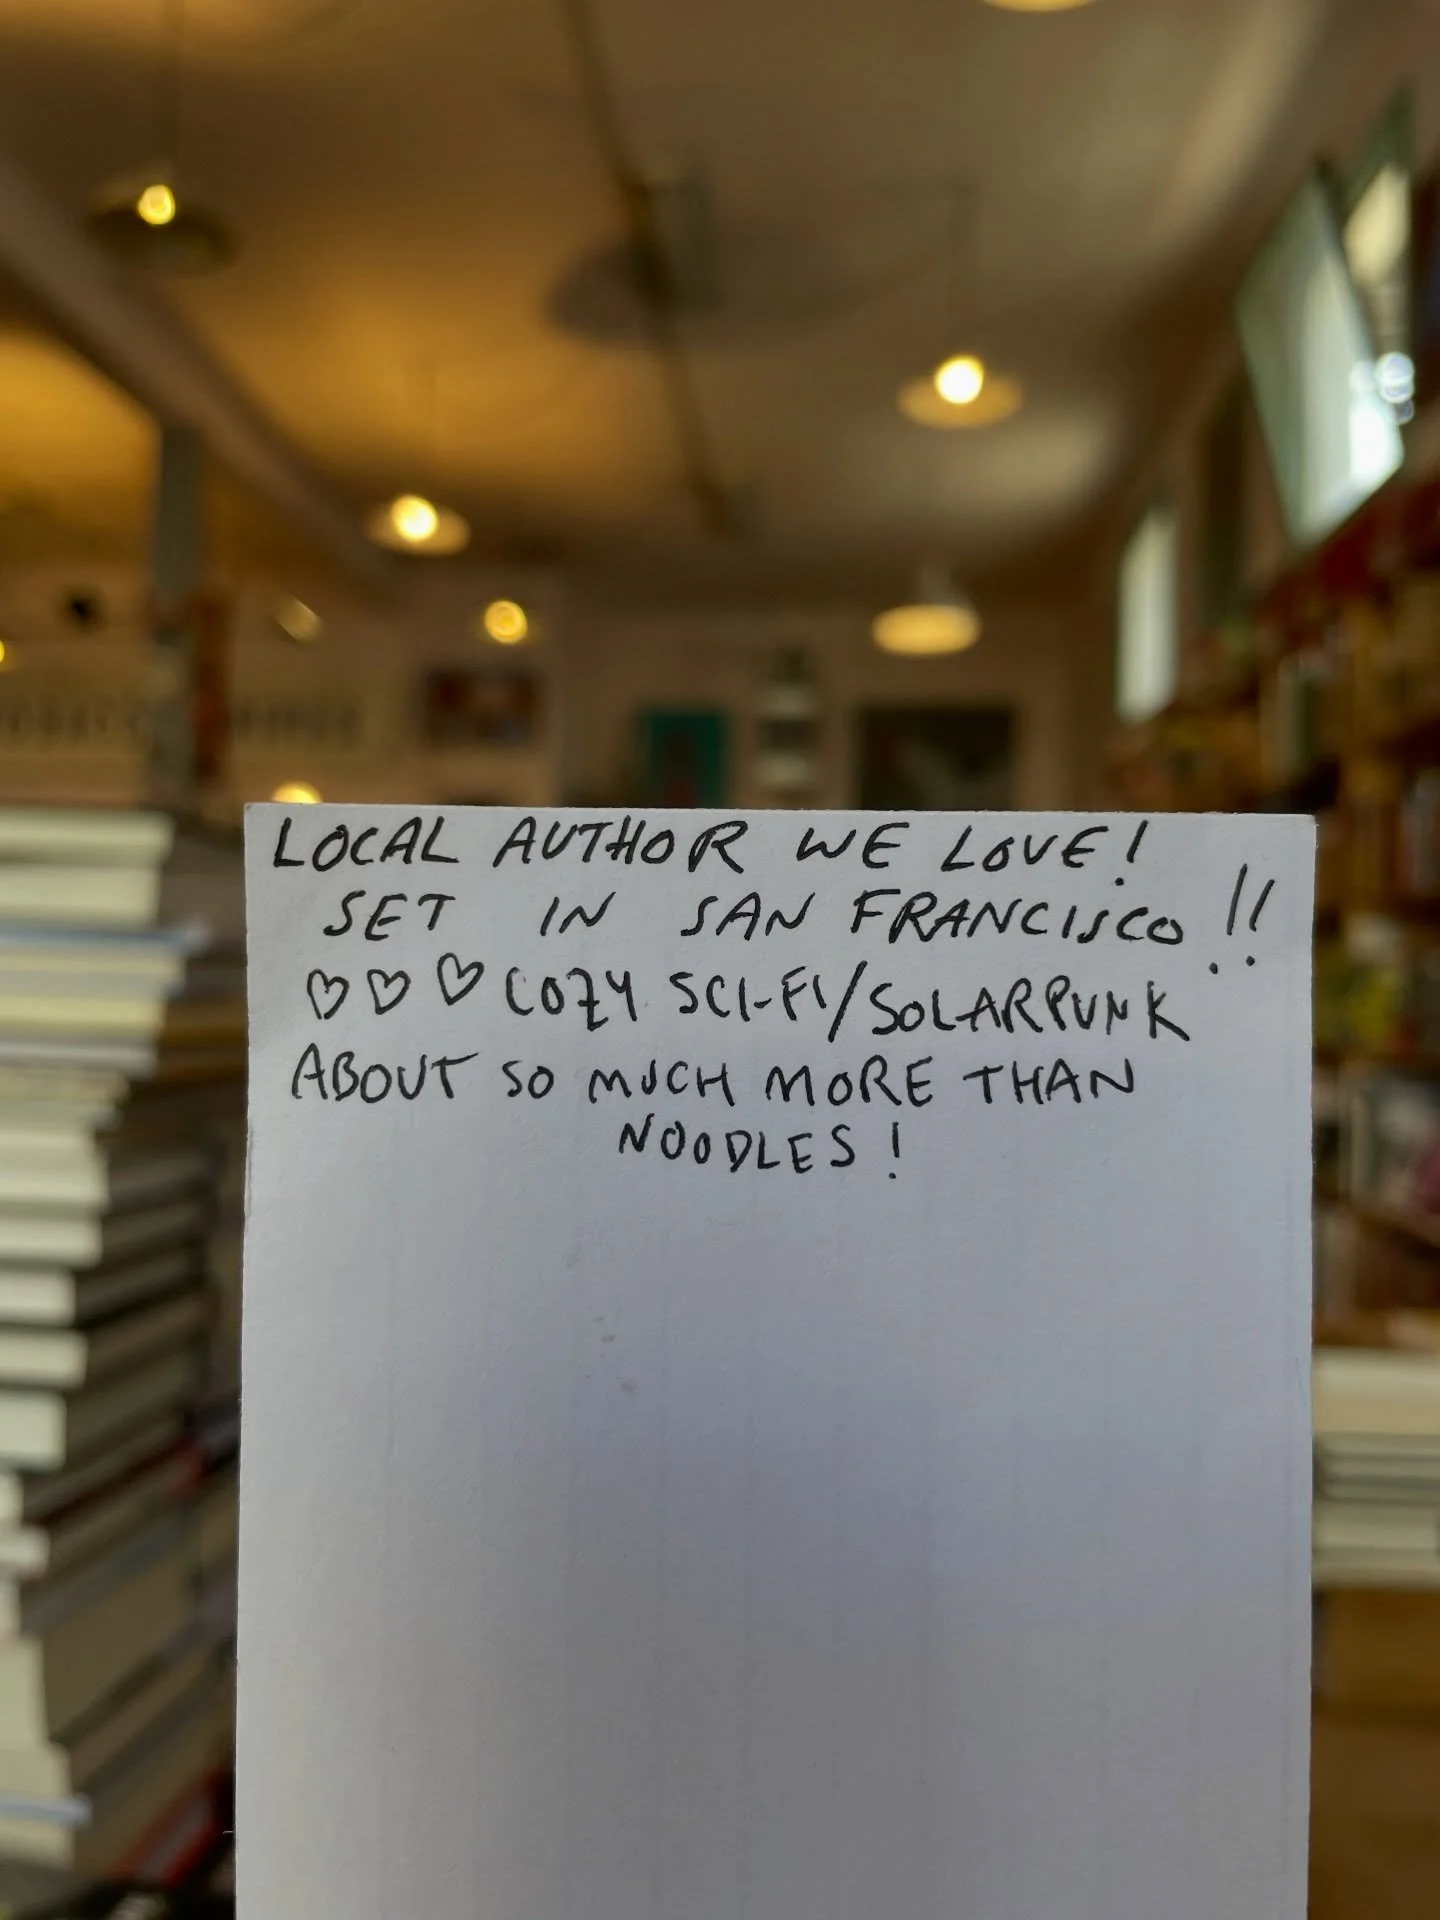 LOCAL AUTHOR WE LOVE!
SET IN SAN FRANCISCO!!
♡♡♡ COZY SCI-FI/SOLARPUNK
ABOUT SO MUCH MORE THAN
NOODLES!